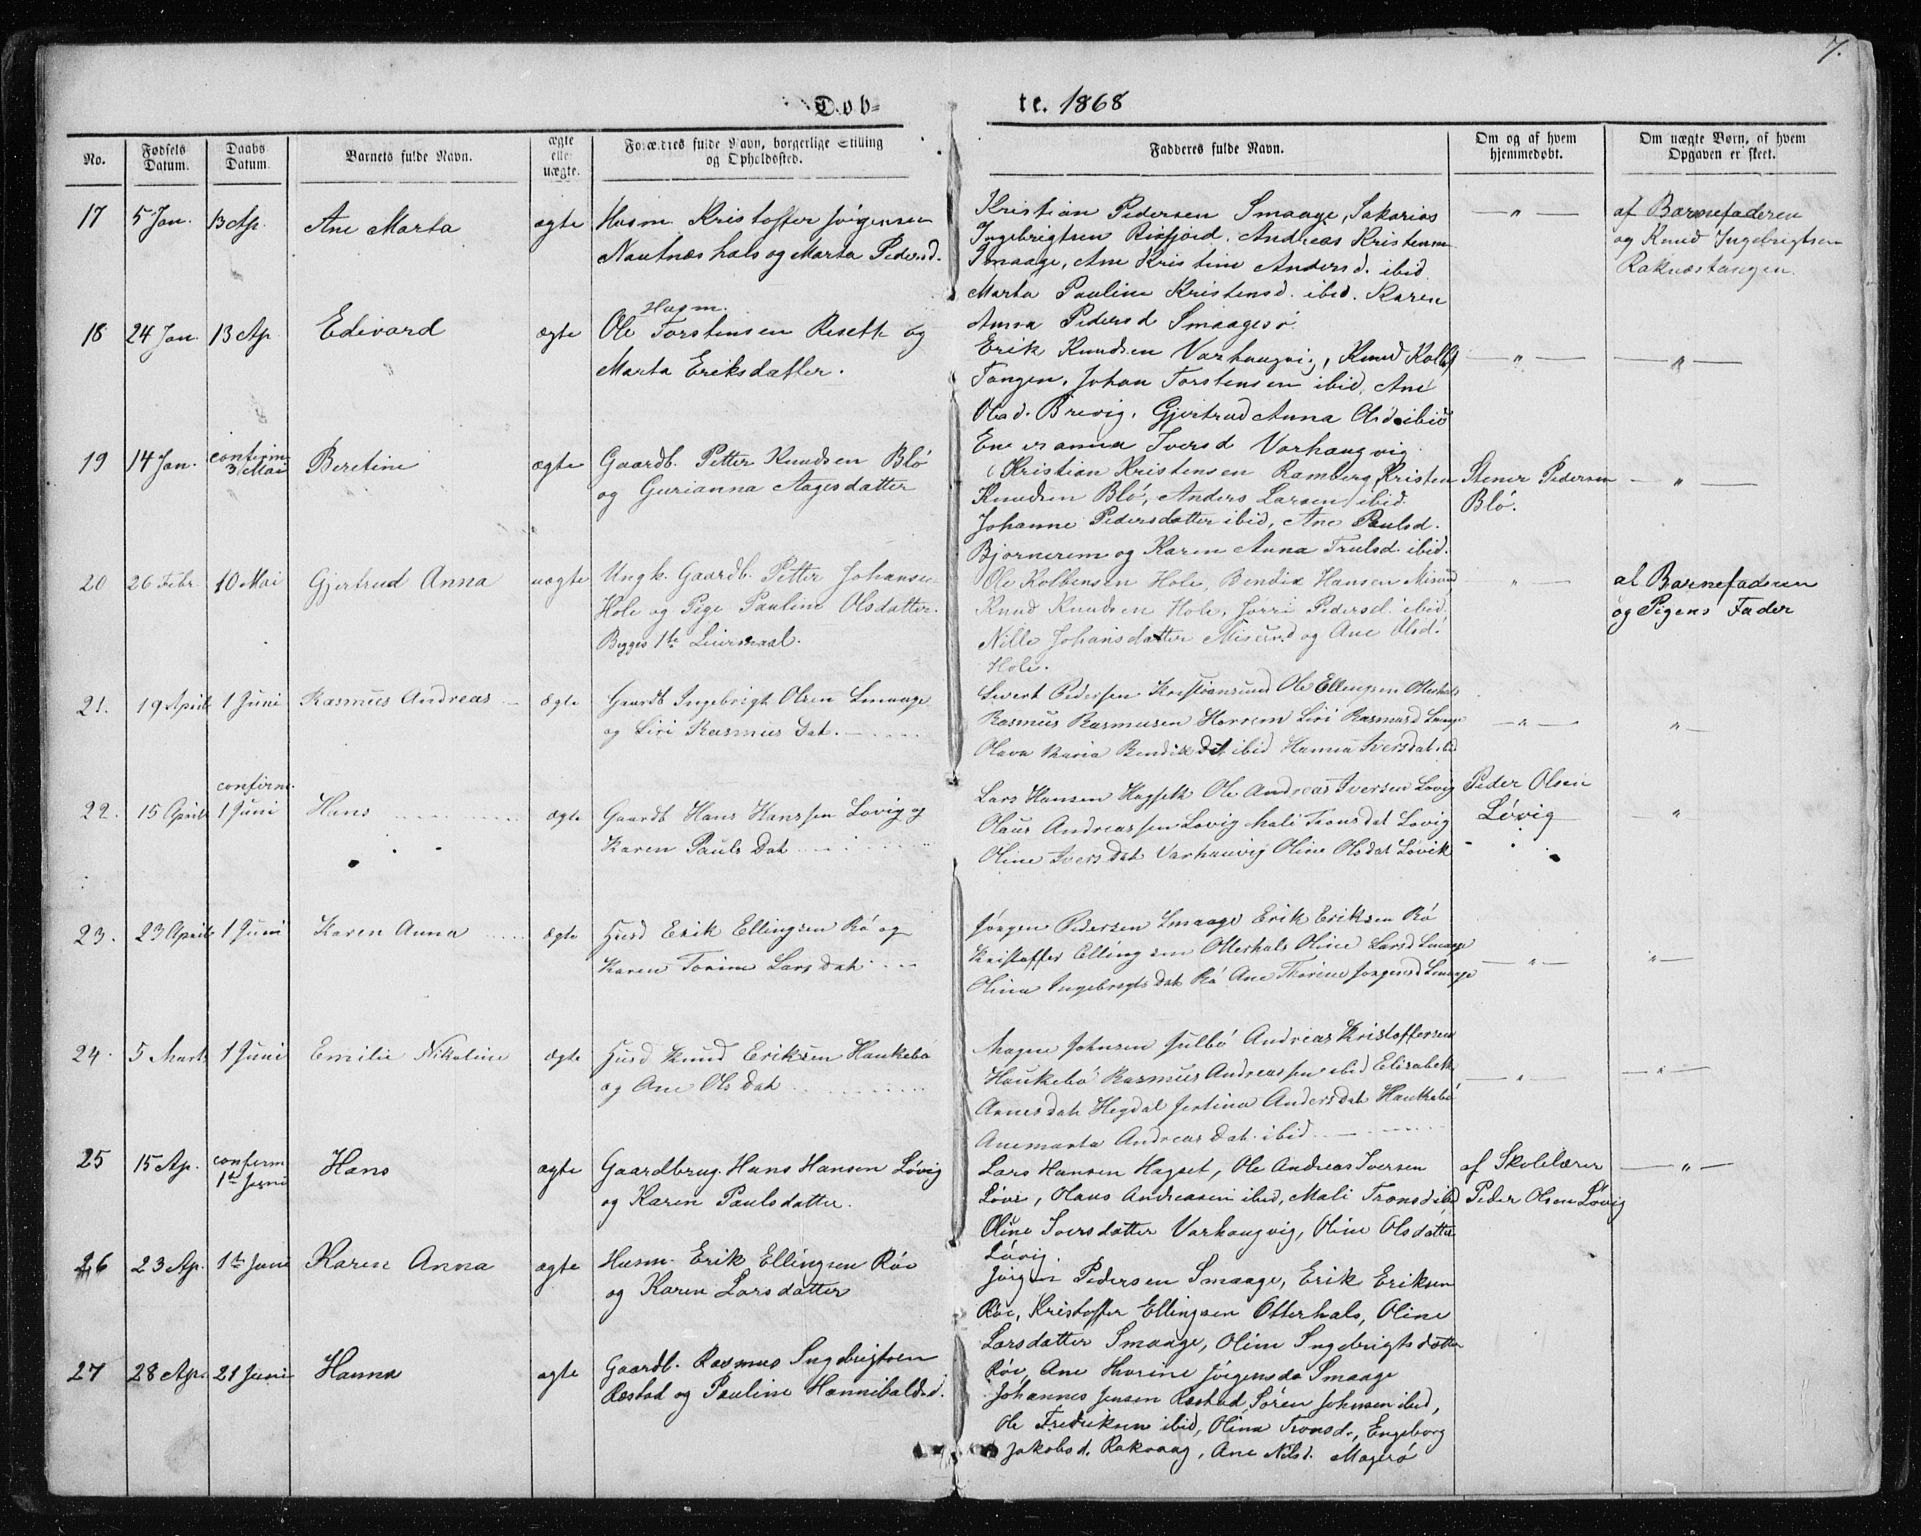 7.
Døb-
te. 1868
No.
Fødsels Datum.
Daabs Datum.
Barnets fulde Navn.
ægte eller uægte.
Forældres fulde Navn, borgerlige Stilling og Opholdssted.
Fadderes fulde Navn.
Om og af hvem hjemmedøbt.
Om uægte Børn, af hvem Opgaven er skeet.
17 5 Jan. 13 Ap. Ane Marta ægte
Husm. Kristoffer Jörgensen
Nautnæshals og Marta Pedersd.
Kristian Pedersen Smaage, Sakarias
Ingebrigtsen Risfjord, Andreas Kristensen
Smaage, Ane Kristine Andersd. ibid
Marta Pauline Kristensd. ibid. Karen
Anna Pedersd Smaagesö.
— " —
af Barnefaderen
og Knud Ingebrigtsen
Raknæstangen.
18 24 Jan. 13 Ap. Edivard ægte
Husm.
Ole Torstensen Reseth og
Marta Eriksdatter.
Erik Knudsen Varhaugvig, Knud Kolbs
Tangen, Johan Torstensen ibid, Ane
Olsd. Brevig, Gjertrud Anna Olsd. ibid
Iversd Varhaugvig.
— " —
— " —
19 14 Jan. confirm. 3 Mai Beretine ægte
Gaardb. Petter Knudsen Blö
og Gurianna Aagesdatter
Kristian Kristensen Ramberg, Kristen
Knudsen Blö, Anders Larsen ibid.
Johanne Pedersdatter ibid, Ane Paulsd.
Bjornerem og Karen Anna Trulsd. ibid.
Stener Pedersen
Blö.
— " —
20 26 Febr. 10 Mai Gjertrud Anna uægte
Ungk. Gaardb. Petter Johansen
Hole og Pige Pauline Olsdatter.
Begges 1te Leiermaal.
Ole Kolbensen Hole, Bendix Hansen Misund
Knud Knudsen Hole, Jörri Pedersd. ibid.
Nille Johansdatter Misund og Ane Olsd.
Hole.
"
af Barnefaderen
og Pigens Fader
21. 19 April 1 Juni Rasmus Andreas ægte
Gaardb Ingebrigt Olsen Smaage
og Siri Rasmus Dat.
Sivert Pedersen Kristiansund Ole Ellingsen Otterhals
Rasmus Rasmusen Harrem Siri Rasmusd Smage
Olava Maria Bendik Dat ibid Hanna Iversdat ibd
— " —
" —
22. 15 April confirm. 1 Juni Hans ægte
Gaardb Hans Hanssen Lovig og
Karen Pauls Dat
Lars Hansen Hagseth Ole Andreas Iversen Lovig
Olaus Andreassen Lovig Mali Tronsdat Lovig
Oline Ivers Dat Varhauvig Oline Olsdat Lovik
Peder Olsen
Løvig
— " —
23. 23 April 1 Juni Karen Anna ægte
Husd Erik Ellingsen Rö og
Karen Torine Lars Dat
Jörgen Pedersen Smaage Erik Eriksen Rö
Kristoffer Ellingsen Otterhals Oline Larsd Smaage
Olina Ingebregts Dat Rö Ane Thorine Jorgensd Smaage
— " —
" —
24. 5 Marts 1 Juni Emilie Nikoline ægte
Husd Knud Eriksen Haukebö
og Ane Ols Dat
Magne Johnsen Julbö Andreas Kristoffersen
Haukebö Rasmus Andreassen ibid Elisabeth
Arnes dat Hegdal Jertina Anders Dat Haukebö
Anemarta Andreas Dat ibid
— " —
— " —
25 15 Ap. confirm 1te Juni Hans ægte
Gaardbrug. Hans Hansen Lövig
og Karen Paulsdatter.
Lars Hansen Hagset, Ole Andreas Iversen
Lövi, Olaus Andreasen ibid, Mali Tronsd ibd
Oline Iversdatter Varhaugvig, Oline Olsdatter
Lövig.
af Skolelærer
Peder Olsen Lövig
— " —
26 23 Ap. 1te Juni Karen Anna ægte
Husm. Erik Ellingsen Röe
og Karen Larsdatter
Jörgen Pedersen Smaage, Erik Eriksen
Röe, Kristoffer Ellingsen Otterhals, Oline
Larsdatter Smaage, Oline Ingebrigtsdatter
Röe, Ane Thorine Jörgensda Smaage
27 28 Ap. 21 Juni Hanna ægte
Gaardb. Rasmus Ingebrigtsen
Rastad og Pauline Hannibalsd.
Johannes Jensen Rastad, Sören Johnsen ibid,
Ole Frederiksen ibid, Olina Tronsd., Engeborg
Jakobsd. Rakvaag, Ane Nilsd. Magerö